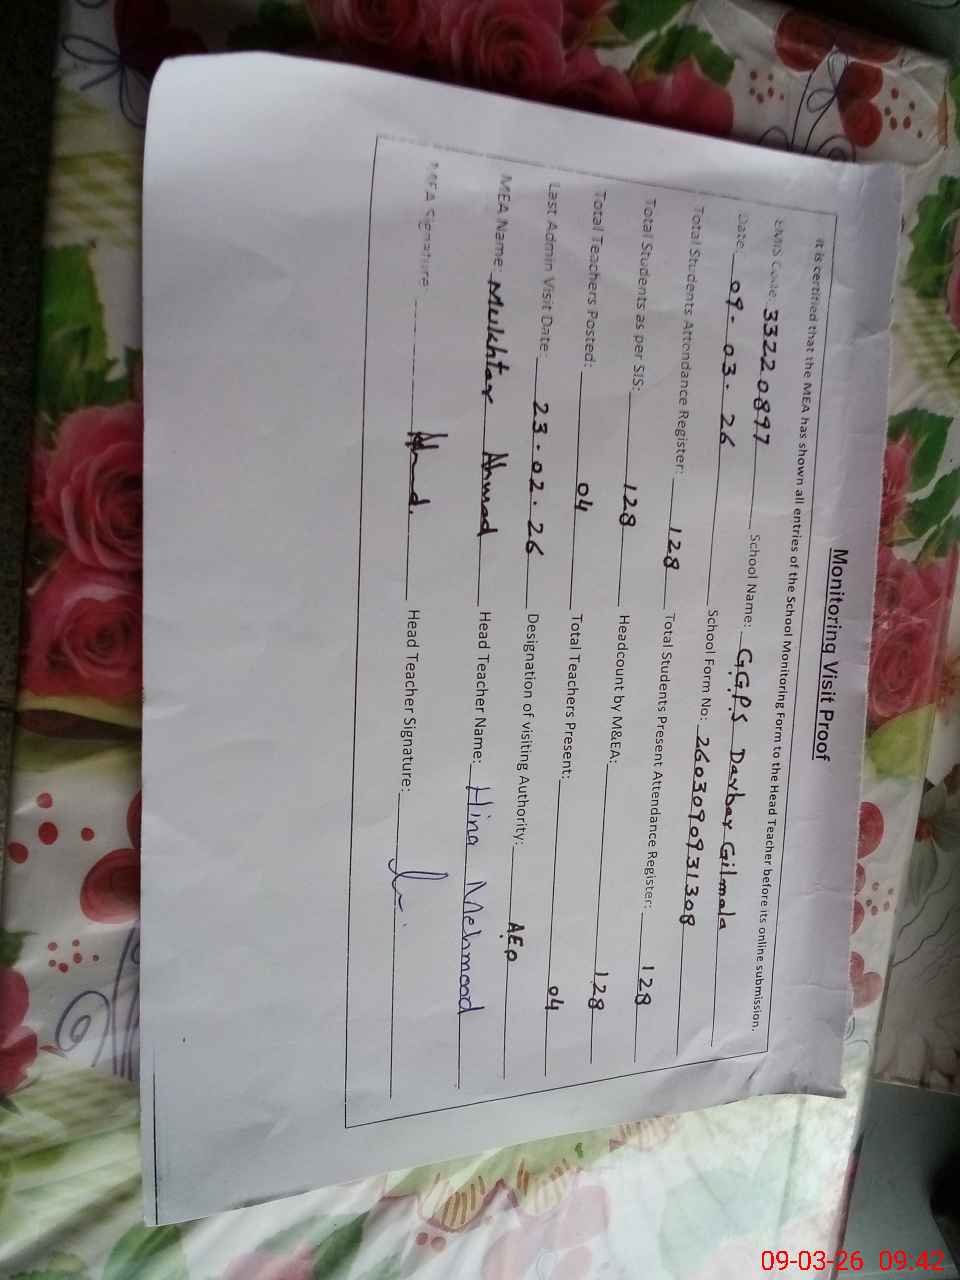 Monitoring Visit Proof
It is certified that the MEA has shown all entries of the School Monitoring Form to the Head Teacher before its online submission.
EMIS Code: 33220897 School Name: G.G.P.S Darbar Gilmala
Date: 09-03-26 School Form No: 2603090931308
Total Students Attendance Register: 128 Total Students Present Attendance Register: 128
Total Students as per SIS: 128 Headcount by M&EA: 128
Total Teachers Posted: 04 Total Teachers Present: 04
Last Admin Visit Date: 23.02.26 Designation of visiting Authority: AEO
MEA Name: Mukhtar Ahmad Head Teacher Name: Hina Mehmood
MEA Signature: Head Teacher Signature:
09-03-26 09:42